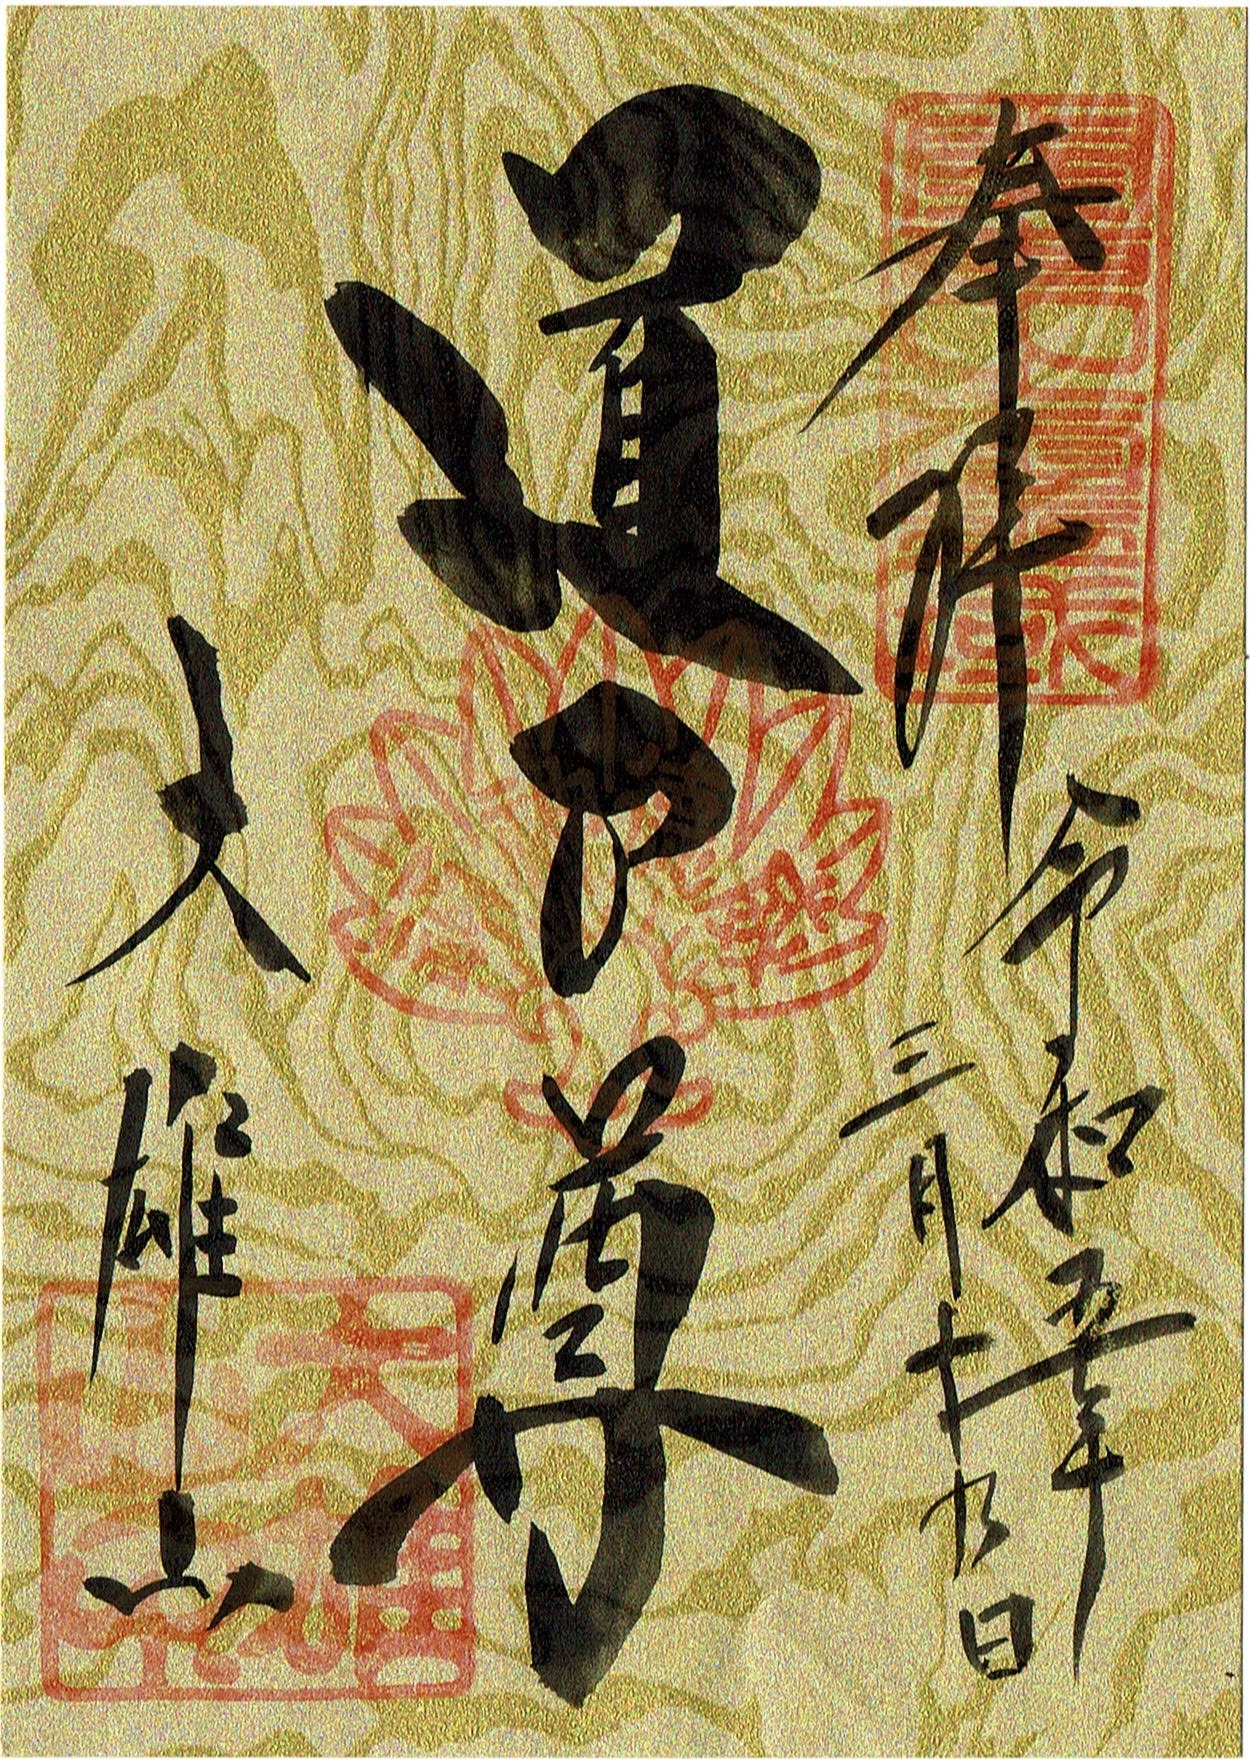 奉拝
令和五年
三月十九日
道了尊
大雄山